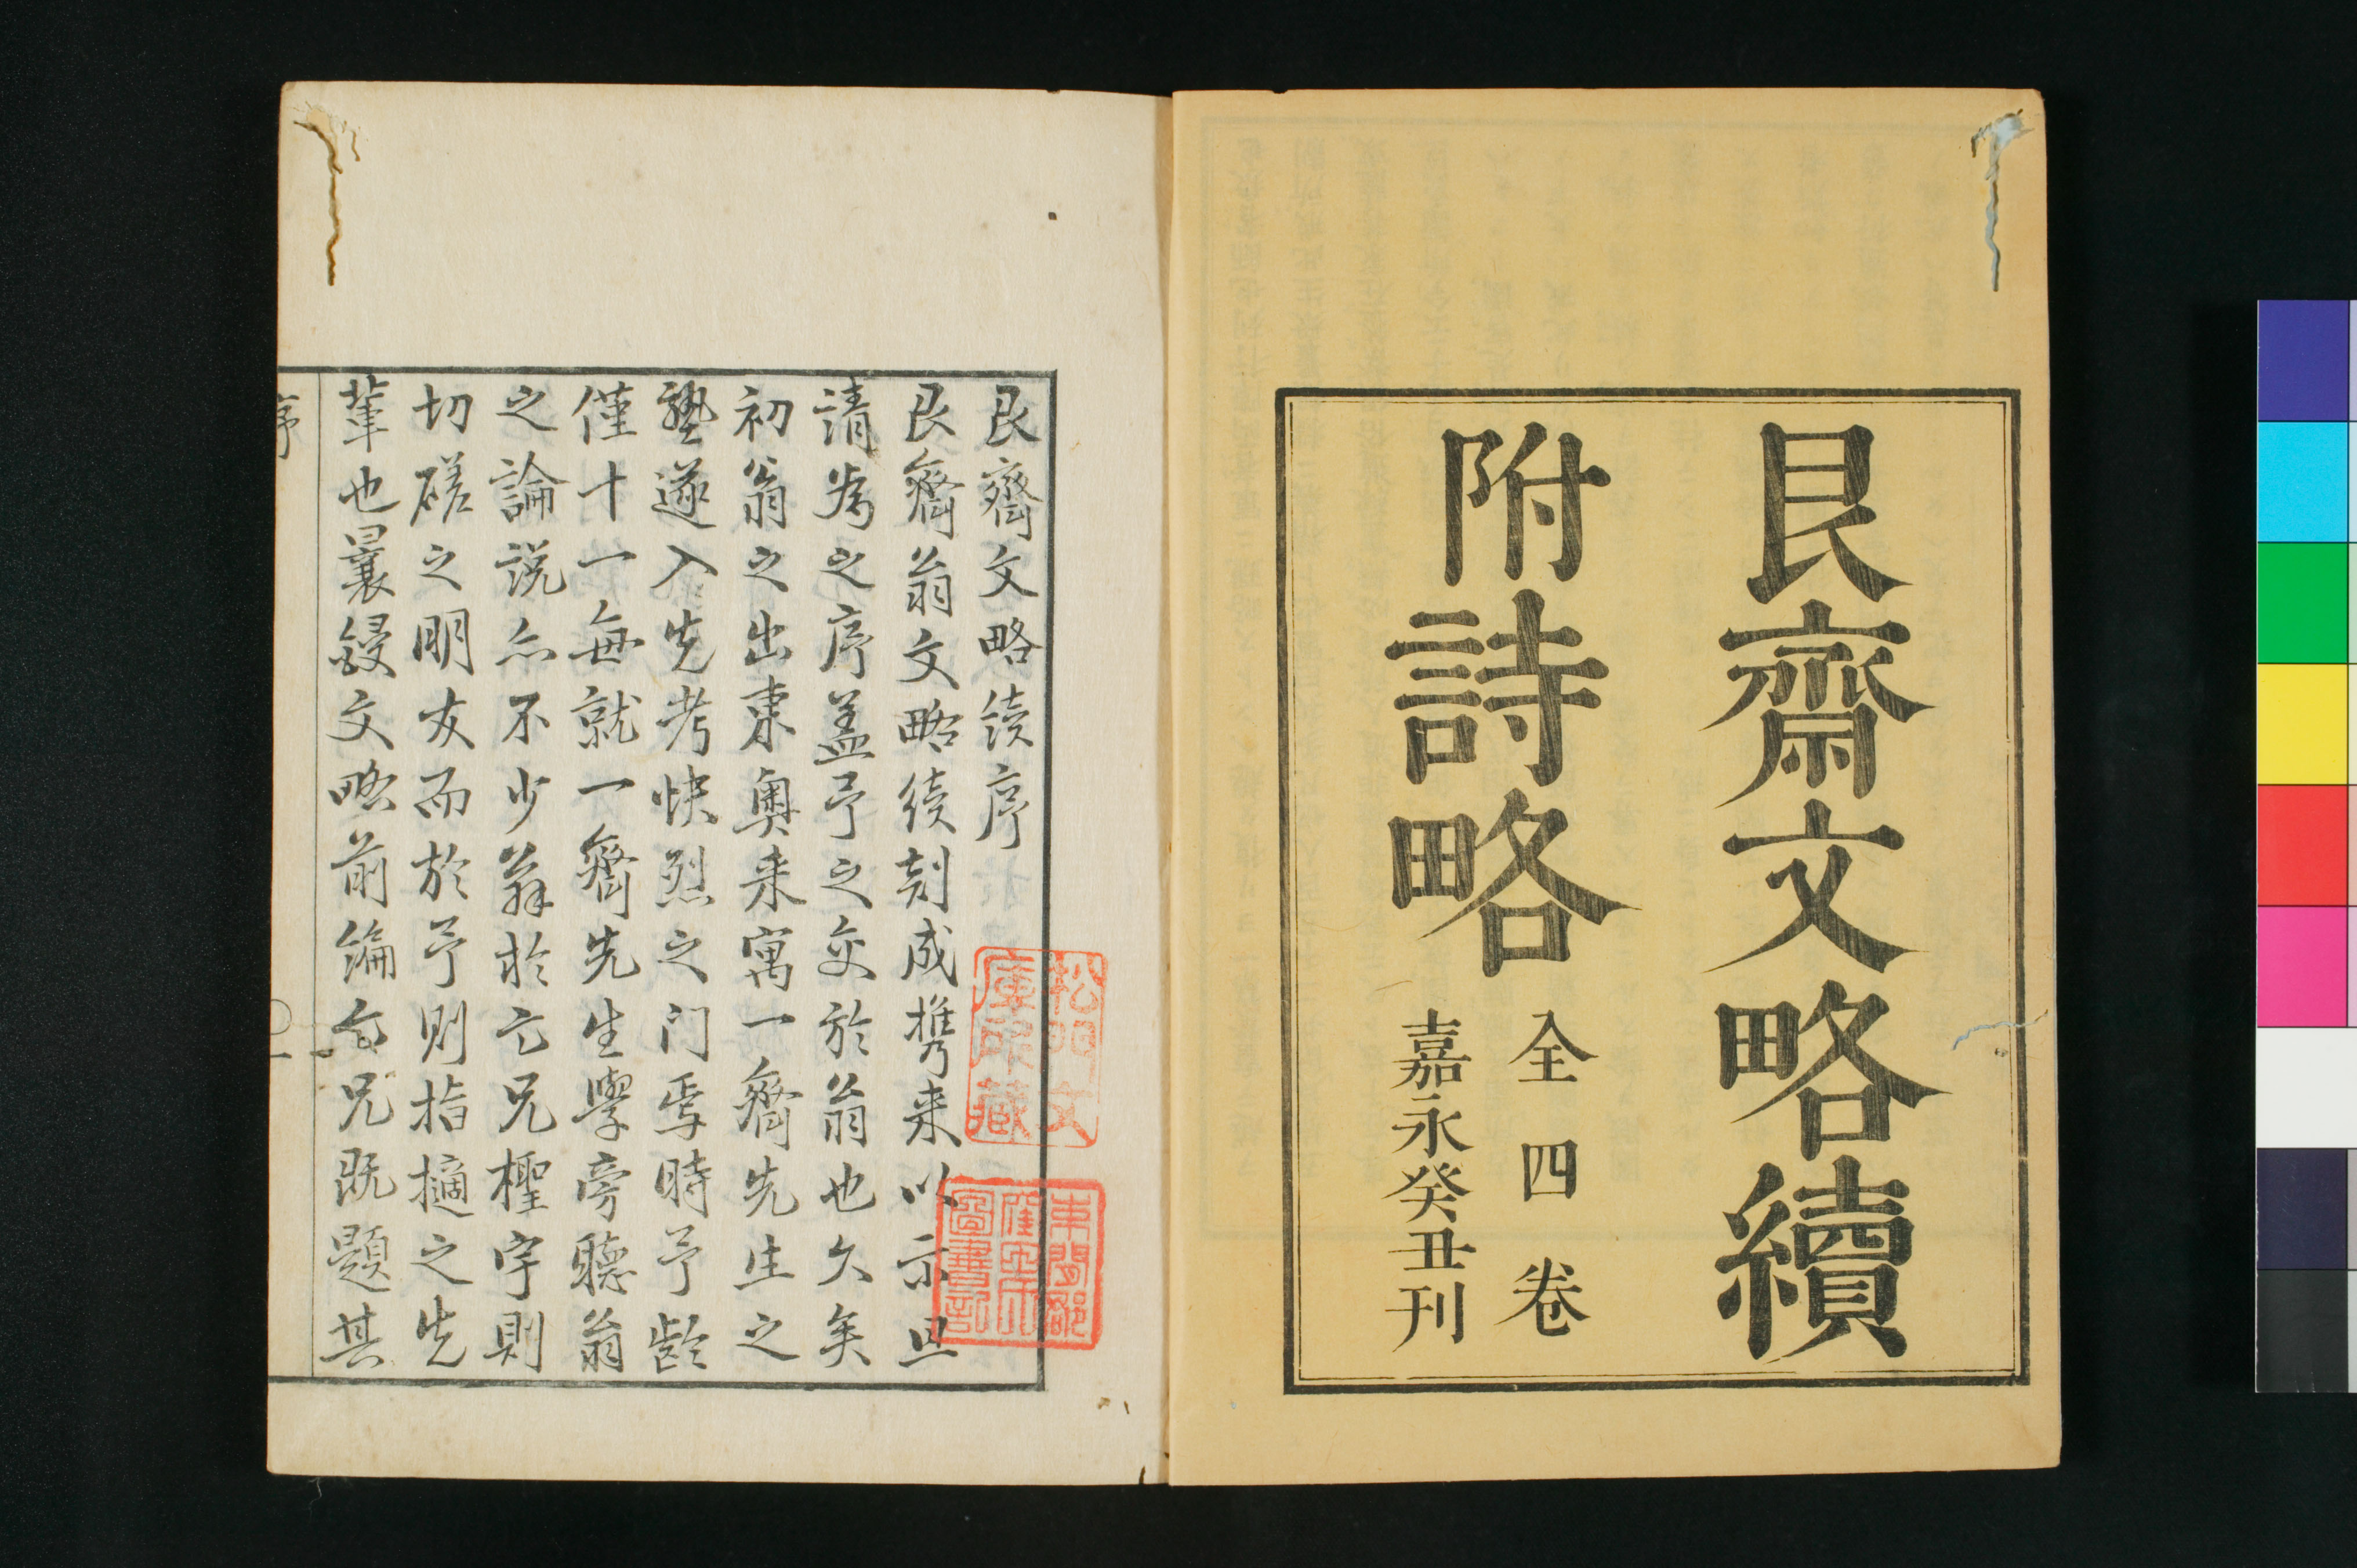 艮齋文略續
附詩略
全四卷
嘉永癸丑刊
艮齋文略續序
艮齋翁文略續刻成携来以示且
請為之序盖予之交於翁也久矣
初翁之出東奥来寓一齋先生之
塾遂入先考快烈之门焉時予齡
僅十一每就一齋先生學旁聽翁
之論説亦不少翁於亡兄檉宇則
切磋之明友而於予則指擿之先
輩也曩鋟文略前編亡兄既題其
序
一
松門文
庫所藏
圖書記